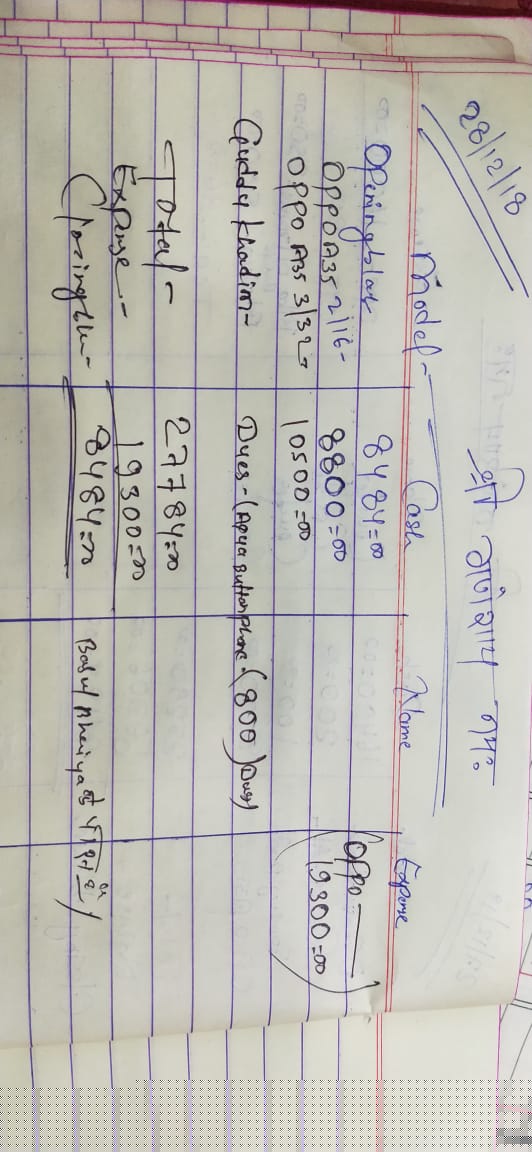 28/12/18
श्री गणेशाय नमः
Model - Cash Name Expense
Opening blat 8484=00 Oppo
OPPO A35 2/16 - 8800=00 19300=00
OPPO A35 3/32 - 10500=00
Guddu Khadim - Dues - (Apya Button phone - (800) Dues)
Total - 27784=00
Expense - 19300=00
8484=00